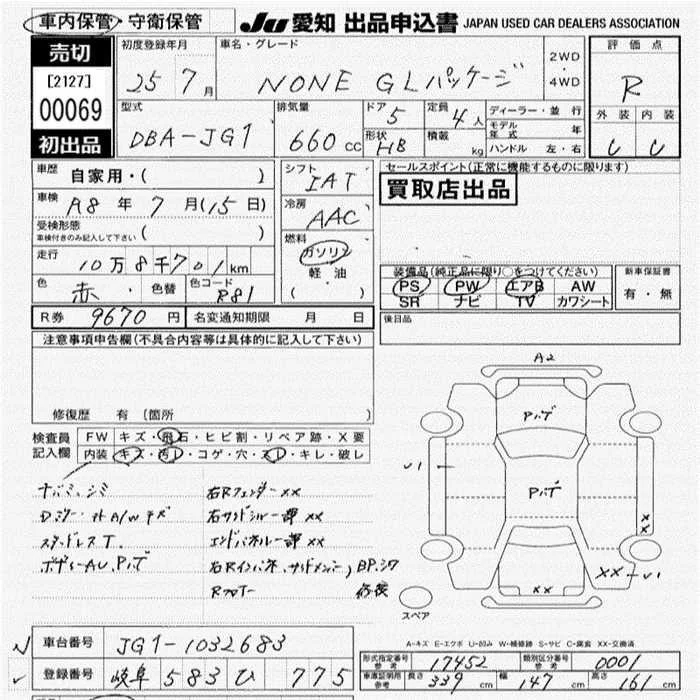 車内保管・守衛保管
JU 愛知 出品申込書 JAPAN USED CAR DEALERS ASSOCIATION
売切
[2127]
00069
初出品
初度登録年月
25 7月
車名・グレード
NONE GLパッケージ
2WD
・
4WD
評価点
R
外装 内装
C C
型式
DBA-JG1
排気量
660cc
ドア 5
形状 HB
定員 4人
積載 kg
ディーラー・並行
モデル年式 年
ハンドル 左・右
車歴 自家用・( )
車検 R8年7月(15日)
受検形態
車検付きのみ記入して下さい ( )
走行 10万8千701km
色 赤・ 色替 色コード R81
シフト IAT
冷房 AAC
燃料
ガソリン
軽油
( )
セールスポイント(正常に機能するものに限ります)
買取店出品
装備品(純正品に限り○をつけてください)
PS PW エアB AW
SR ナビ TV カワシート
新車保証書
有・無
R券 9670円 名変通知期限 月 日
後日品
注意事項申告欄(不具合内容等は具体的に記入して下さい)
修復歴 有 [箇所 ]
検査員記入欄
FW キズ・飛石・ヒビ割・リペア跡・X要
内装 キズ・汚レ・コゲ・穴・スレ・キレ・破レ
A2
Pハゲ
Pハゲ
U1
XX
XX
XX-U1
スペア
スタッドレスT.
右Rフェンダー XX
A-キズ E-エクボ U-凹み W-補修跡 S-サビ C-腐食 XX-交換済
車台番号 JG1-1032683
登録番号 岐阜 583 ひ 775
形式指定番号 参考 17452 類別区分番号 参考 0001
車庫証明用 参考 長さ 339cm 幅 147cm 高さ 161cm